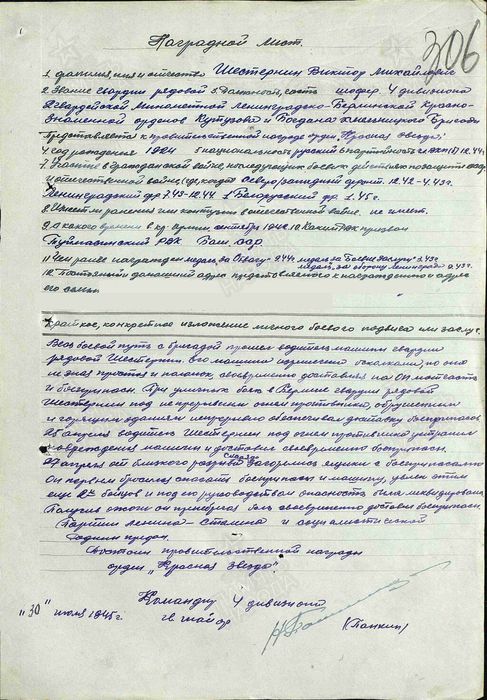 306
Наградной лист.
1. фамилия, имя и отчество Шестернин Виктор Михайлович
2. Звание гвардии рядовой 3. Должность, часть шофер 4 дивизиона
Гвардейской Минометной Ленинградско-Берлинской Красно-
знаменной орденов Кутузова и Богдана Хмельницкого Бригады
Представляется к правительственной награде орден "Красная звезда"
4. Год рождения 1924 5 национальность русский 6 партийность
7. Участие в гражданской войне, последующих боевых действиях по защите СССР
и отечественной войне (где, когда) Северо/западный фронт. 12.42-4.43 г.
Ленинградский фр 7.43-12.44. 1 Белорусский фр. 1.45 г.
8. Имеет ли ранения или контузии в отечественной войне. не имеет.
9. с какого времени в кр. Армии сентября 1942 10. Каким РВК призван
Туймазинский РВК Баш. ССР.
11 Чем ранее награжден медаль "за Отвагу" медаль за Боевые заслуги
медаль "за оборону Ленинграда"
12. Постоянный домашний адрес представляемого к награждению и адрес
его семьи.
Краткое, конкретное изложение личного боевого подвига или заслуг.
Весь боевой путь с бригадой прошел водитель машины гвардии
рядовой Шестернин. его машина изрешечена осколками, но она
не зная простоя и поломок своевременно доставляла на ОП
и боеприпасы. При уличных боях в Берлине гвардии рядовой
Шестернин под непрерывным огнем противника, обрушенным
и горящим зданием непрерывно обеспечивал доставку боеприпасов.
апреля водитель Шестернин под огнем противника устранил
повреждения машины и доставил своевременно боеприпасы.
апреля от близкого разрыва снаряда загорелись ящики с боеприпасами
Он первым бросился спасать боеприпасы и машину, увлек этим
еще бойцов и под его руководством опасность была ликвидирована.
Получив ожоги он
Партии Ленина-Сталина и социалистической
Родине предан.
Достоин правительственной награды
орден "Красная Звезда"
Командир 4 дивизиона
гв. майор (Панкин)
"30" 1945 г.